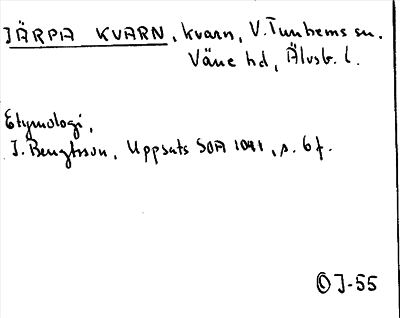 JÄRPA KVARN, kvarn, V. Tunhems sn.
Väne hd, Älvsb. l.
Etymologi,
J. Bengtsson, Uppsats SOA 1041, s. 6 f.
OJ-55